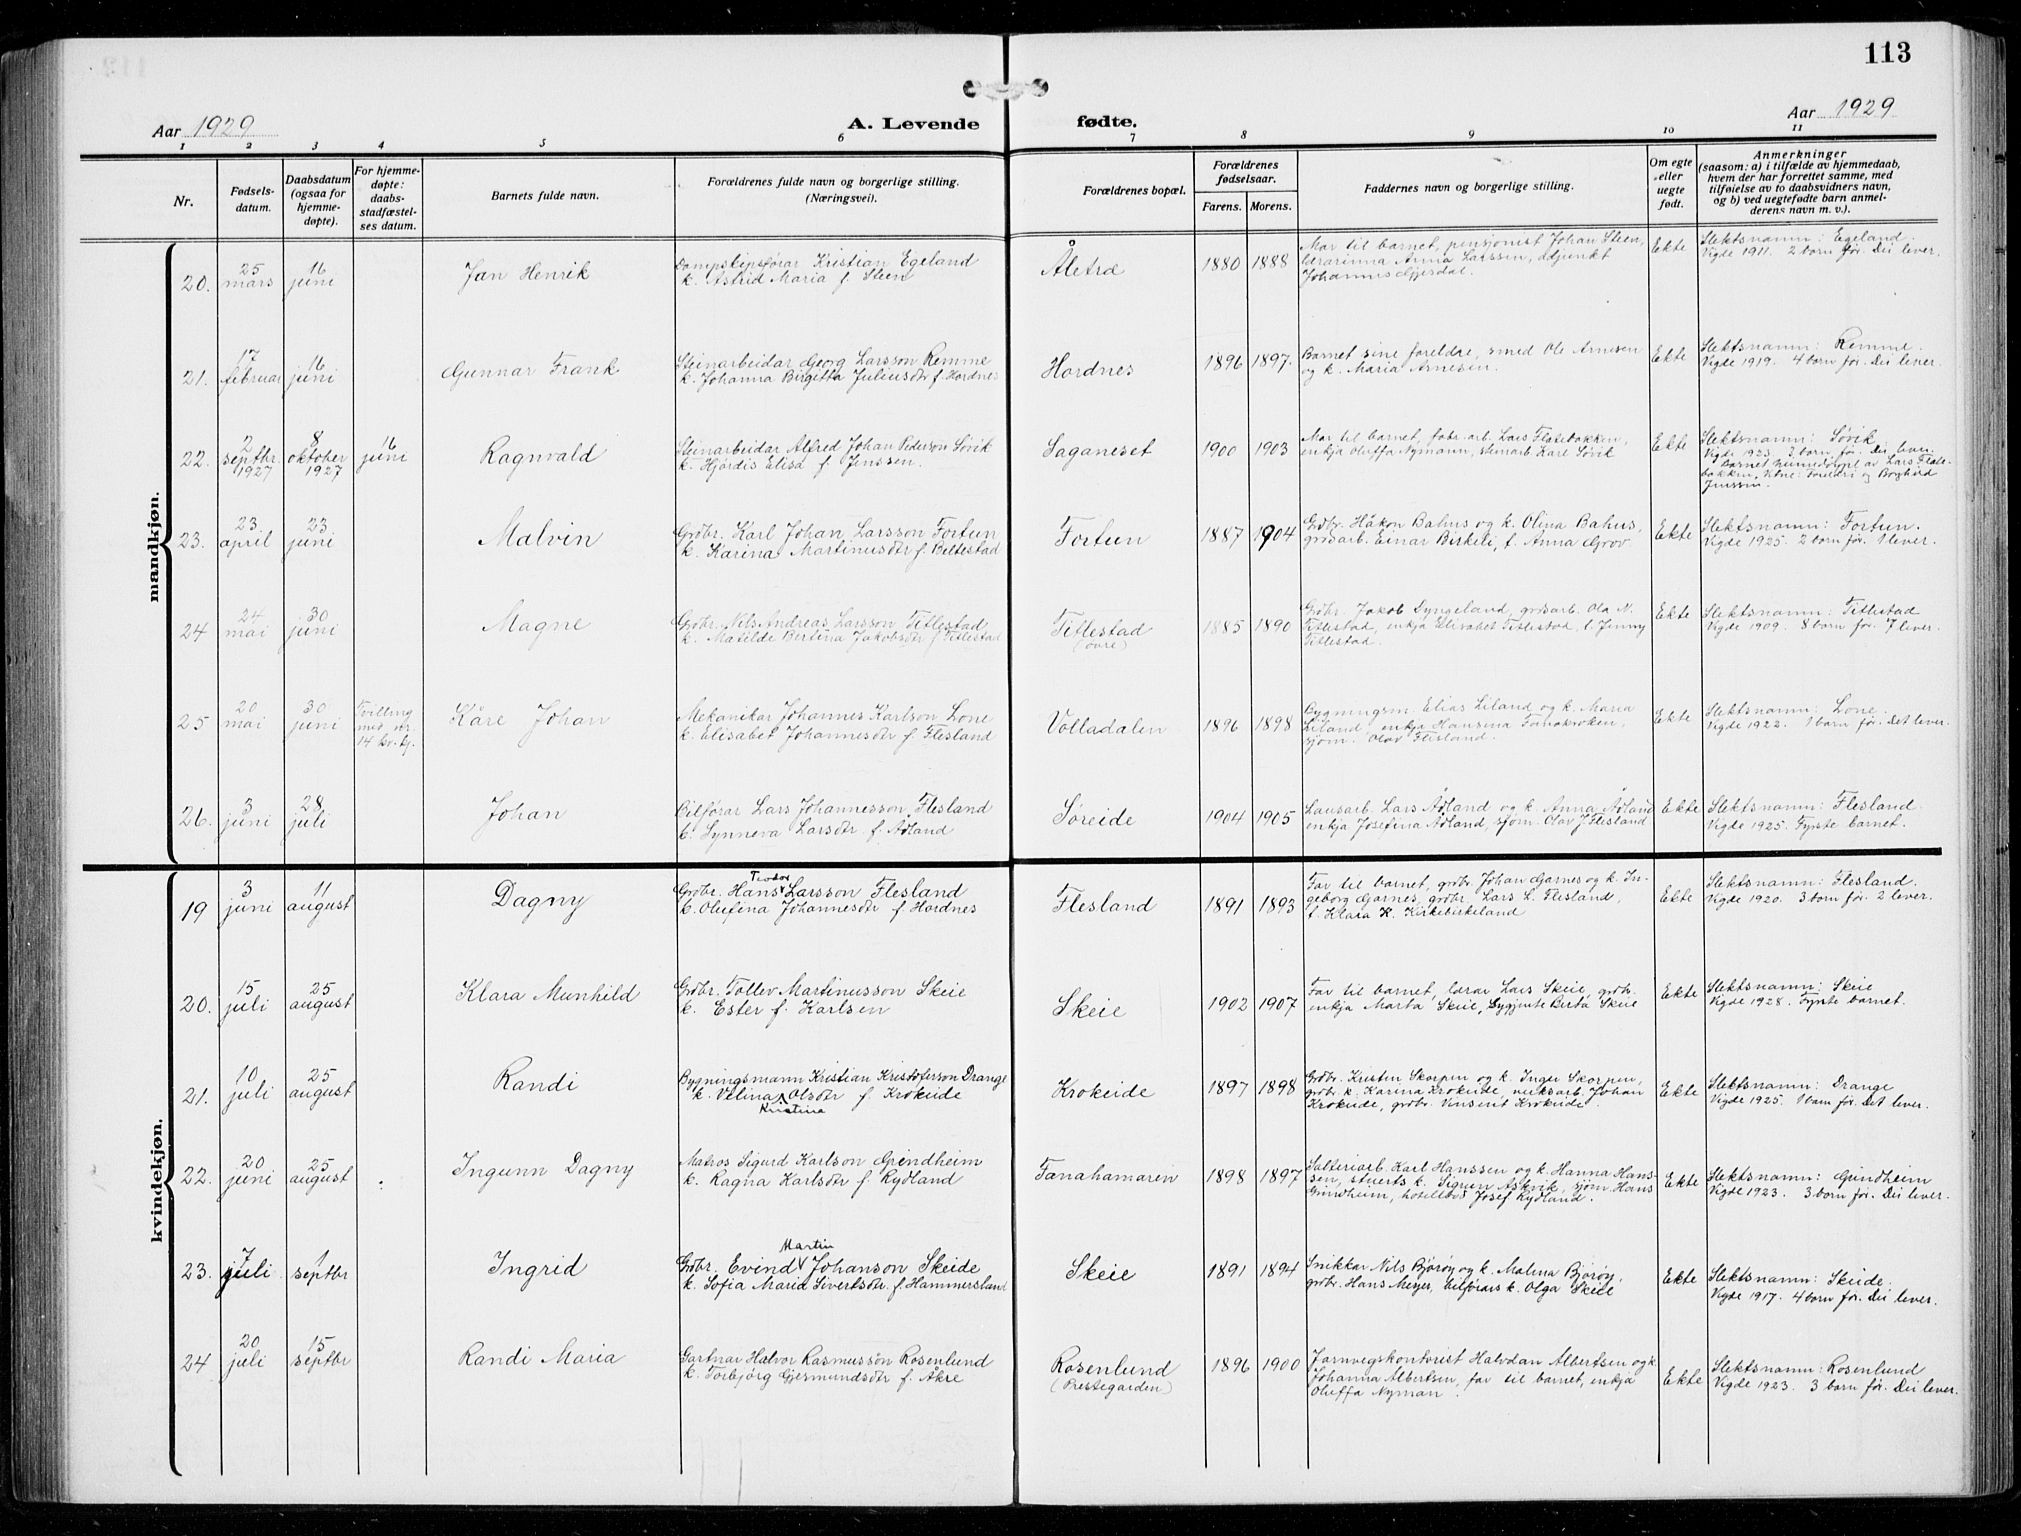 113
Aar 1929
A. Levende
fødte.
Aar 1929
1 2 3 4 5 6 7 8 9 10 11
Nr.
Fødsels-
datum.
Daabsdatum
(ogsaa for
hjemme-
døpte).
For hjemme-
døpte:
daabs-
stadfæstel-
ses datum.
Barnets fulde navn.
Forældrenes fulde navn og borgerlige stilling.
(Næringsvei).
Forældrenes bopæl.
Forældrenes
fødselsaar.
Farens. Morens.
Faddernes navn og borgerlige stilling.
Om egte
eller
uegte
født.
Anmerkninger
(saasom: a) i tilfælde av hjemmedaab,
hvem der har forrettet samme, med
tilføielse av to daabsvidners navn,
og b) ved uegtefødte barn anmel-
derens navn m. v.).
mandkjøn.
20.
25
mars
16
juni
Jan Henrik
Dampskipsførar Kristian Egeland
k. Astrid Maria f. Steen
Åletræ
1880 1888
Mor til barnet, pensjonist Johan Steen,
lærarinna Anna Larssen, adjunkt
Johannes Gjerdal.
Ekte
Slektsnamn: Egeland.
Vigde 1911. 2 born før. Dei lever.
21.
17
februar
16
juni
Gunnar Frank
Steinarbeidar Georg Larsson Remme
k. Johanna Birgitta Juliusdtr f. Hordnes
Hordnes
1896 1897.
Barnet sine foreldre, smed Ole Arnesen
og k. Maria Arnesen.
Ekte
Slektsnamn: Remme.
Vigde 1919. 4 born før. Dei lever.
22.
2
septbr.
1927
8
oktober
1927
16
juni
Ragnvald
Steinarbeidar Alfred Johan Pederson Søvik
k. Hjørdis Elisa f. Jenssen.
Saganeset
1900 1903
Mor til barnet, fabr.arb. Lars Flatebakken,
enkja Oluffa Nymann, steinarb. Karl Søvik
Ekte
Slektsnamn: Søvik
Vigde 1923. 3 born før. Dei lever.
Barnet heimedøypt av Lars Flate-
bakken, Vitne: Foreldri og Borghild
Jenssen.
23.
23
april
23
juni
Malvin
Grdbr. Karl Johan Larsson Fortun
k. Karina Martinusdtr f. Beltestad
Fortun
1887 1904
Grdbr. Håkon Bahus og k. Olina Bahus,
grdsarb. Einar Birkeli, f. Anna Grov.
Ekte
Slektsnamn: Fortun.
Vigde 1925. 2 born før. 1 lever.
24
24
mai
30
juni
Magne
Grdbr. Nils Andreas Larsson Titlestad
k. Matilde Bertina Jakobsdtr f. Titlestad
Titlestad
(øvre)
1885 1890
Grdbr. Jakob Lyngeland, grdsarb. Ola N.
Titlestad, enkja Elisabet Titlestad, f. Jenny
Titlestad.
Ekte
Slektsnamn: Titlestad
Vigde 1909. 8 born før. 7 lever.
25
20
mai
30
juni
Tvilling
med nr.
14 kv. kj.
Kåre Johan
Mekanikar Johannes Karlson Lone
k. Elisabet Johannesdtr f. Flesland
Volladalen
1896 1898
Bygningsm. Elias Liland og k. Maria
Liland, enkja Hansina Fanakroken,
sjøm. Olav Flesland.
Ekte
Slektsnamn: Lone.
Vigde 1922. 1 born før. Det lever.
26.
3
juni
28
juli
Johan
Bilførar Lars Johannesson Flesland
k. Synneva Larsdtr f. Ådland
Søreide
1904 1905
Lausarb. Lars Ådland og k. Anna Ådland
enkja Josefina Ådland, sjøm. Olav J. Flesland
Ekte
Slektsnamn: Flesland.
Vigde 1925. Fyrste barnet.
kvindekjøn.
19
3
juni
11
august
Dagny
Teodor
Grdbr. Hans Larsson Flesland
k. Olufina Johannesdtr f. Hordnes
Flesland
1891 1893
Far til barnet, grdbr. Johan Garnes og k. In-
geborg Garnes, grdbr. Lars L. Flesland,
f. Klara K. Kirkebirkeland
Ekte
Slektsnamn: Flesland.
Vigde 1920. 3 born før. 2 lever.
20.
15
juli
25
august
Klara Munhild
Grdbr. Tollev Martinusson Skeie
k. Ester f. Karlsen
Skeie
1902 1907
Far til barnet, lærar Lars Skeie, grdbr.
enkja Marta Skeie, Sygjente Berta Skeie
Ekte
Slektsnamn: Skeie
Vigde 1928. Fyrste barnet.
21.
10
juli
25
august
Randi
Bygningsmann Kristian Kristoferson Drange
k. Velina Olsdtr f. Krokeide
Kristina
Krokeide
1897 1898
Grdbr. Kristen Skorpen og k. Inger Skorpen,
grdbr. k. Karina Krokeide, verksarb. Johan
Krokeide, grdbr. Vinsent Krokeide.
Ekte
Slektsnamn: Drange
Vigde 1925. 1 born før. Det lever.
22.
20
juni
25
august
Ingunn Dagny
Matros Sigurd Karlson Grindheim
k. Ragna Karlsdtr f. Rydland
Fanahamaren
1898 1897
Salteriarb. Karl Hanssen og k. Hanna Hans-
sen, stuerts k. Sigrun Askvik, sjøm. Hans
Grindheim, hotellbud Josef Rydland.
Ekte
Slektsnamn: Grindheim
Vigde 1923. 3 born før. Dei lever.
23.
7
juli
1
septbr
Ingrid
Martin
Grdbr. Evind Johanson Skeide
k. Sofia Maria Sivertsdtr. f. Hammersland
Skeie
1891 1894
Snikkar Nils Bjørøy og k. Malena Bjørøy,
grdbr. Hans Meyer, bilførars k. Olga Skeie
Ekte
Slektsnamn: Skeide.
Vigde 1917. 4 born før. Dei lever.
24.
20
juli
15
septbr
Randi Maria
Gartnar Halvor Rasmusson Rosenlund
k. Torbjørg Gjermundsdtr f. Åkre
Rosenlund
(Prestegarden)
1896 1900
Jarnvegskontorist Halvdan Albertsen og k.
Johanna Albertsen, far til barnet, enkja
Oluffa Nyman.
Ekte
Slektsnamn: Rosenlund
Vigde 1923. 3 born før. Dei lever.